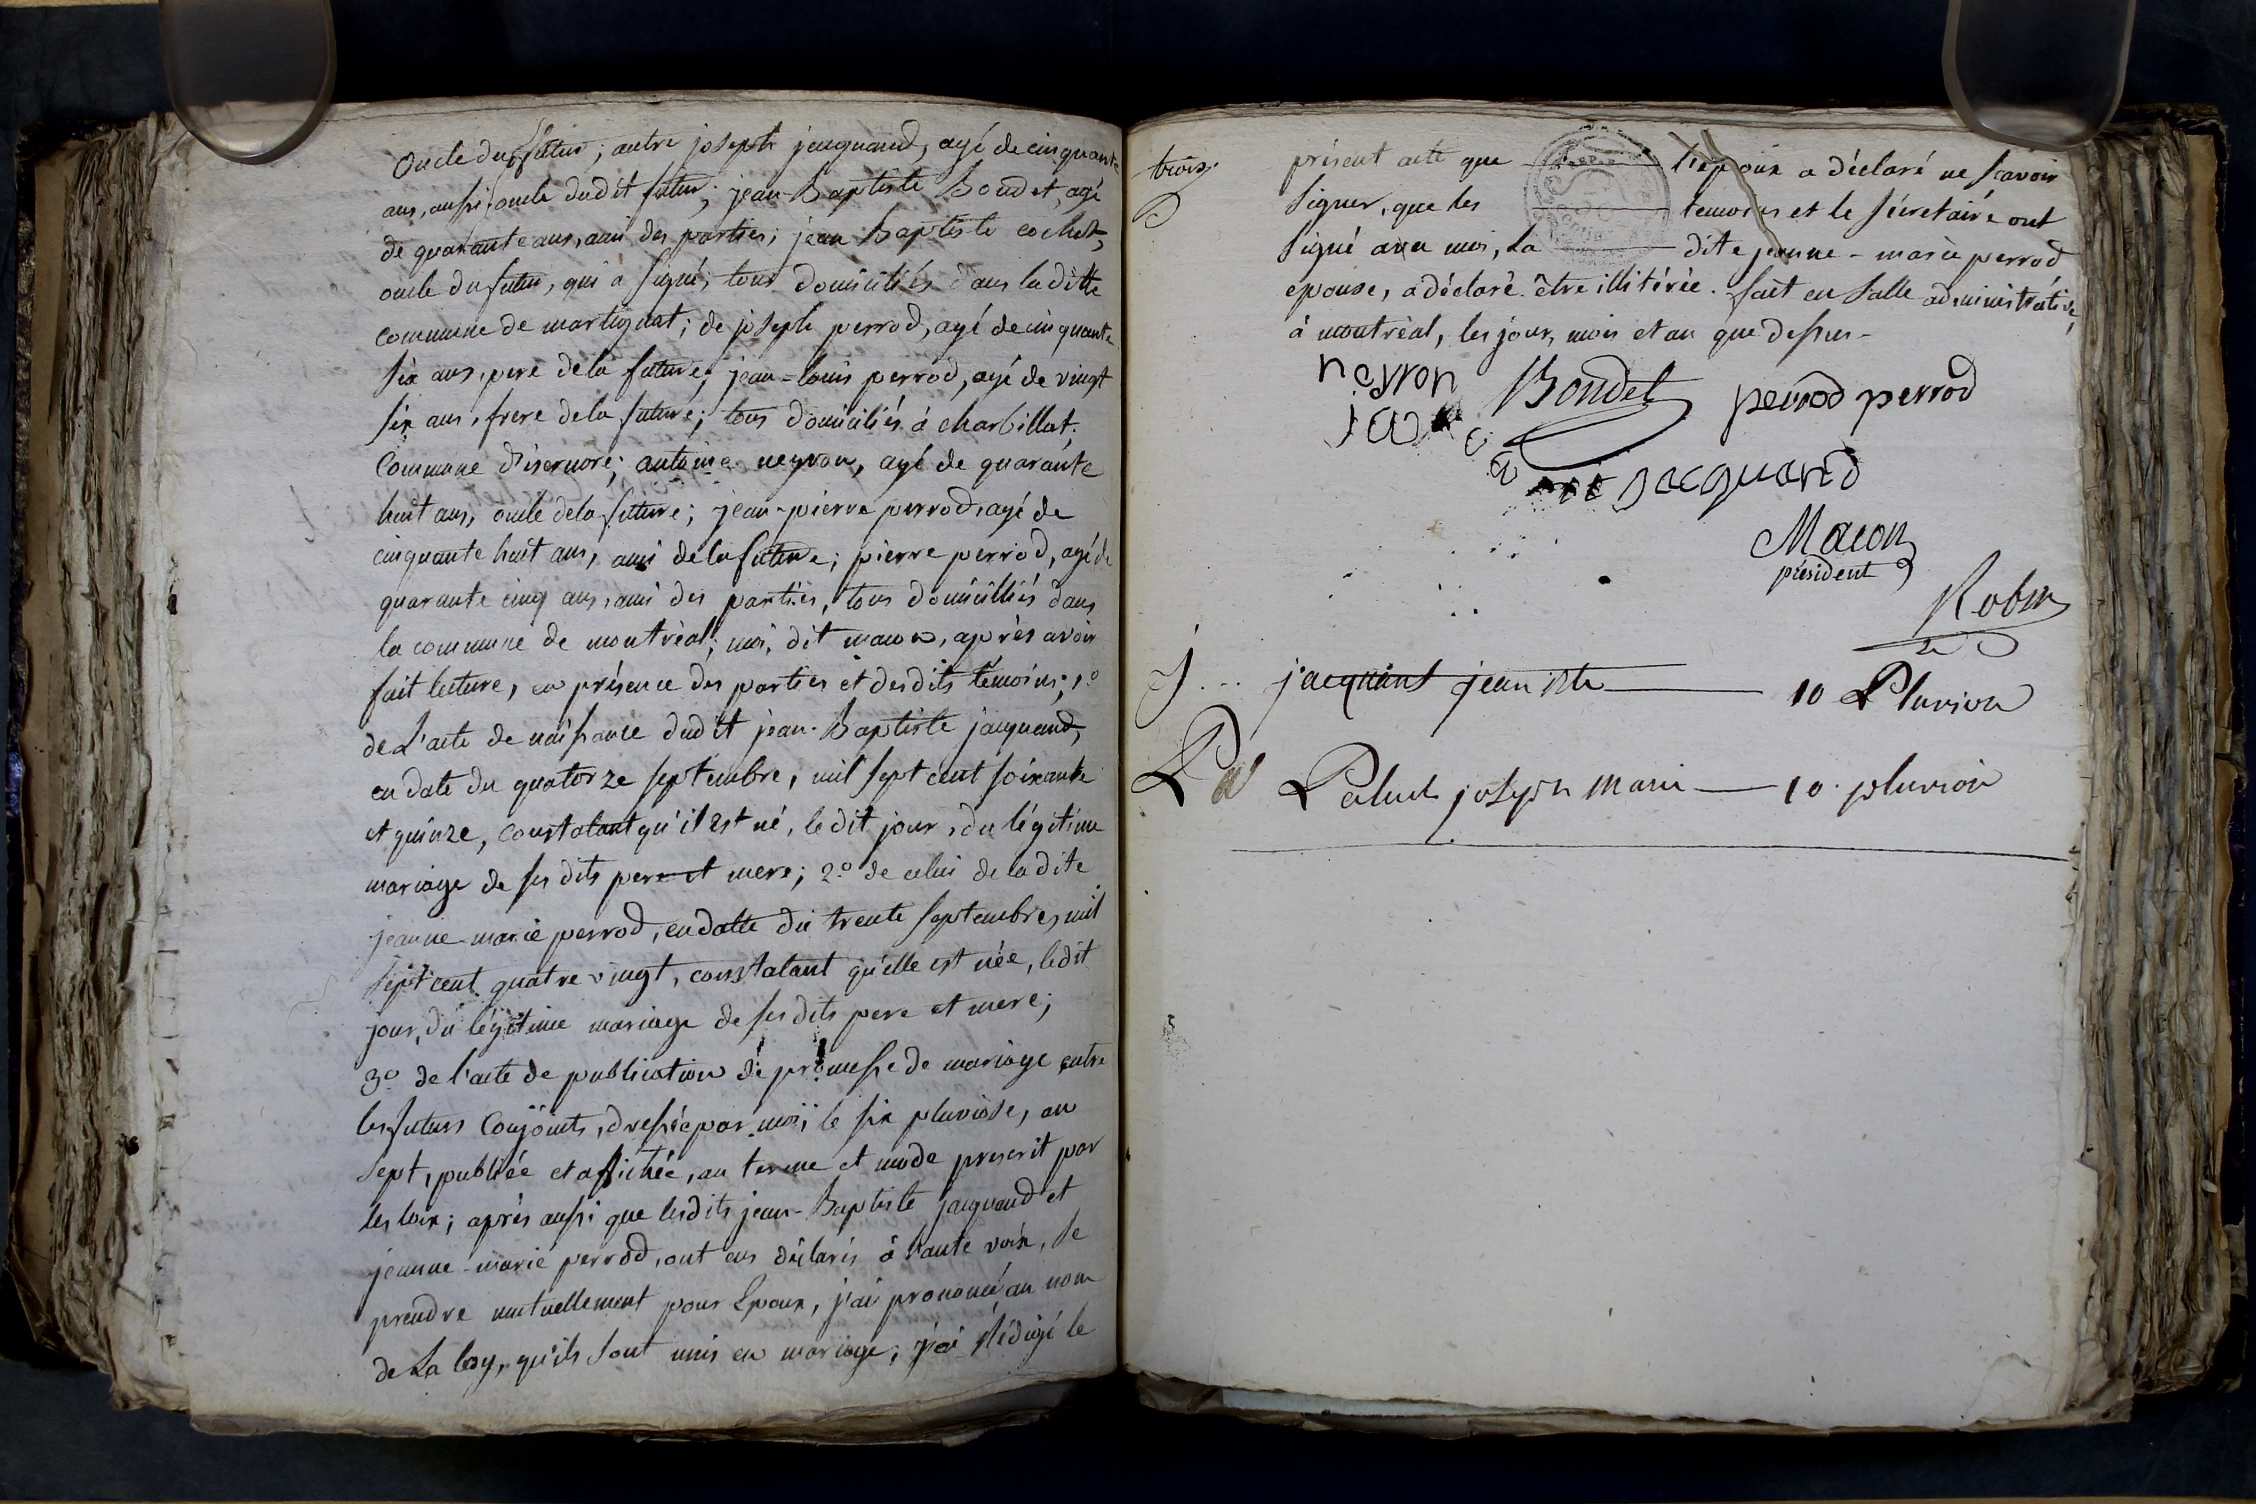 oncle du futur; autre joseph jacquand, agé de cinquante
ans, aussi oncle dudit futur; jean-Baptiste Boudet, agé
de quarante ans, ami des parties; jean Baptiste cochet,
oncle du futur, qui a signé; tous domiciliés dans la ditte
commune de martignat; de joseph perrod, agé de cinquante
six ans, pere de la future; jean-louis perrod, agé de vingt
six ans, frere de la future; tous domiciliés à charbillat,
commune d'isernore; antoine neyron, agé de quarante
huit ans, oncle de la future; jean-pierre perrod, agé de
cinquante huit ans, ami de la future; pierre perrod, agé de
quarante cinq ans, ami des parties, tous domicilliés dans
la commune de montréal; moi, dit macon, après avoir
fait lecture, en présence des parties et desdits témoins; 1.º
de L'acte de naissance dudit jean-Baptiste jacquand,
en date du quatorze septembre, mil sept cent soixante
et quinze, constatant qu'il est né, le dit jour, du légitime
mariage de ses dits pere et mere; 2.º de celui de la dite
jeanne-marie perrod, en datte du trente septembre, mil
sept cent quatre vingt, constatant qu'elle est née, ledit
jour, du légitime mariage de ses dits pere et mere;
3.º de l'acte de publication de promesse de mariage entre
les futurs conjoints, dressé par moi, le six pluviose, an
sept, publiée et affichée, au terme et mode prescrit par
les loix; après aussi que lesdits jean-Baptiste jacquand et
jeanne-marie perrod, ont eus déclarés à haute voix, se
prendre mutuellement pour Epoux, j'ai prononcé au nom
de La loy, qu'ils sont unis en mariage; j'ai rédigé le
trois.
présent acte que l'epoux a déclaré ne scavoir
signer, que les temoins et le sécretaire ont
signé avec moi, la dite jeanne-marie perrod
epouse, a déclaré être illitérée. fait en salle administrative,
à montréal, les jour, mois et an que dessus-
neyron
Boudet perrod perrod
jacquand
Macon
président
Robin
J... jacquant jean Bte 10 Pluviose
Pal Palud joseph Marie 10. pluviose